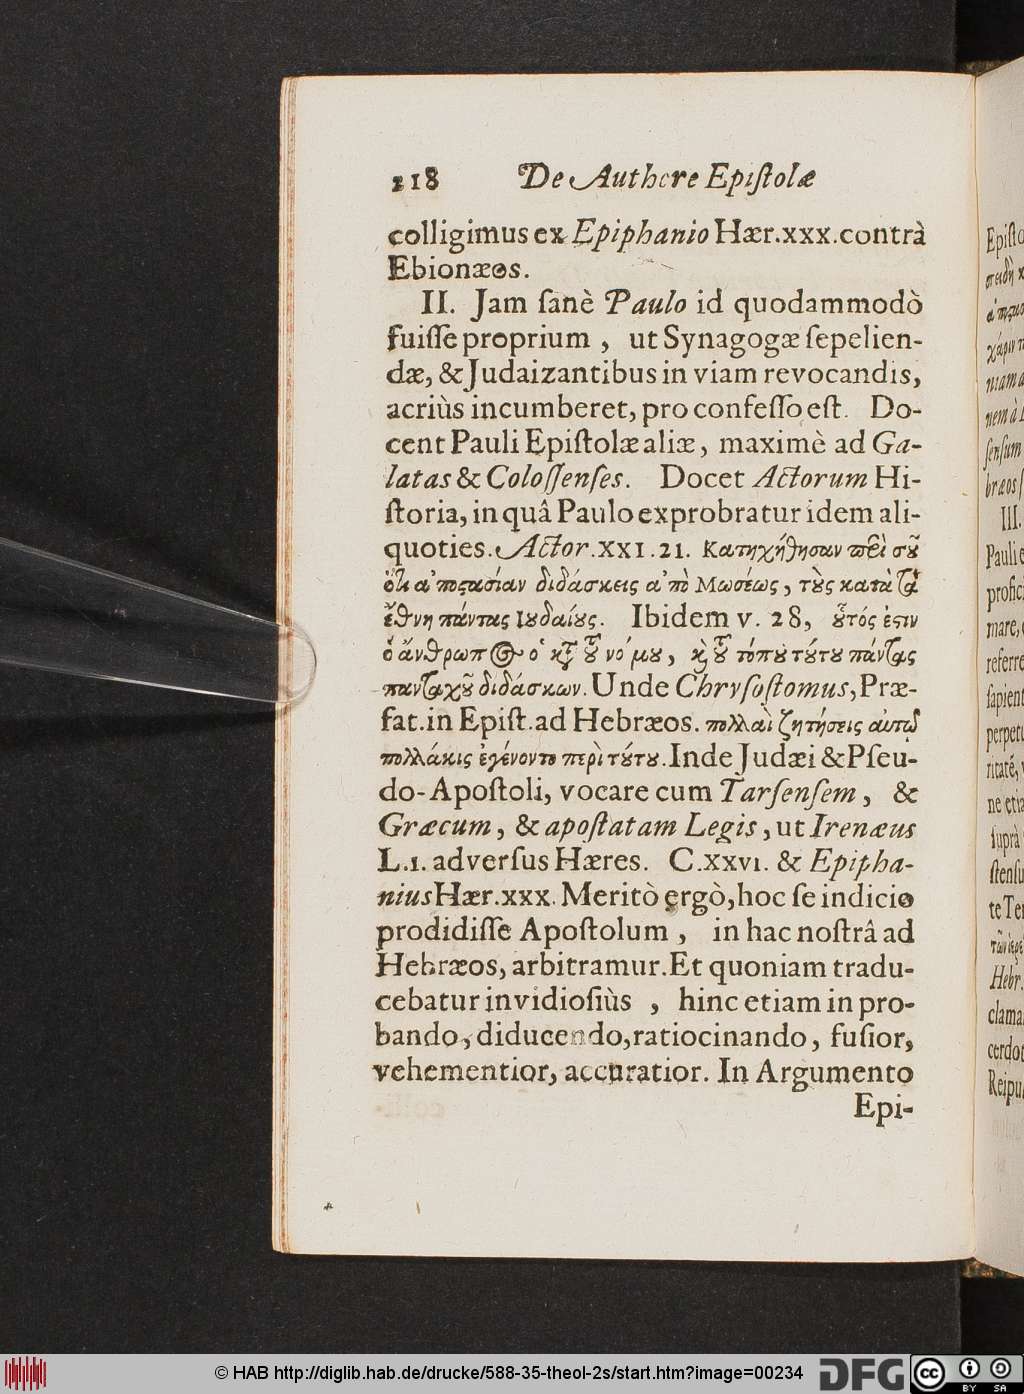 218 De Authore Epistolæ
colligimus ex Epiphanio Hær.xxx.contrà
Ebionæos.
II. Jam sanè Paulo id quodammodò
fuisse proprium, ut Synagogæ sepelien-
dæ, & Judaizantibus in viam revocandis,
acriùs incumberet, pro confesso est. Do-
cent Pauli Epistolæ aliæ, maximè ad Ga-
latas & Colossenses. Docet Actorum Hi-
storia, in quâ Paulo exprobratur idem ali-
quoties. Actor.XXI.21. Κατηχήθησαν περὶ σοῦ
ὅτι ἀποστασίαν διδάσκεις ἀπὸ Μωσέως, τοὺς κατὰ τὰ
ἔθνη πάντας Ιουδαίους. Ibidem v. 28, οὗτός ἐστιν
ὁ ἄνθρωπος ὁ κατὰ τοῦ νόμου, καὶ τοῦ τόπου τούτου πάντας
πανταχοῦ διδάσκων. Unde Chrysostomus, Præ-
fat.in Epist.ad Hebræos. πολλαὶ ζητήσεις αὐτῷ
πολλάκις ἐγένοντο περὶ τούτου. Inde Judæi & Pseu-
do-Apostoli, vocare eum Tarsensem, &
Græcum, & apostatam Legis, ut Irenæus
L.1. adversus Hæres. C.XXVI. & Epipha-
nius Hær.xxx. Meritò ergò, hoc se indicio
prodidisse Apostolum, in hac nostrâ ad
Hebræos, arbitramur. Et quoniam tradu-
cebatur invidiosiùs, hinc etiam in pro-
bando, diducendo, ratiocinando, fusior,
vehementior, accuratior. In Argumento
Epi-
Episto
III.
Pauli e
profici
mare,
referre
sapient
perpetu
ritatē,
ne etia
suprà
stensu
te Ter
Hebr.
clama
cerdot
Reipu
© HAB http://diglib.hab.de/drucke/588-35-theol-2s/start.htm?image=00234
DFG
cc
BY SA